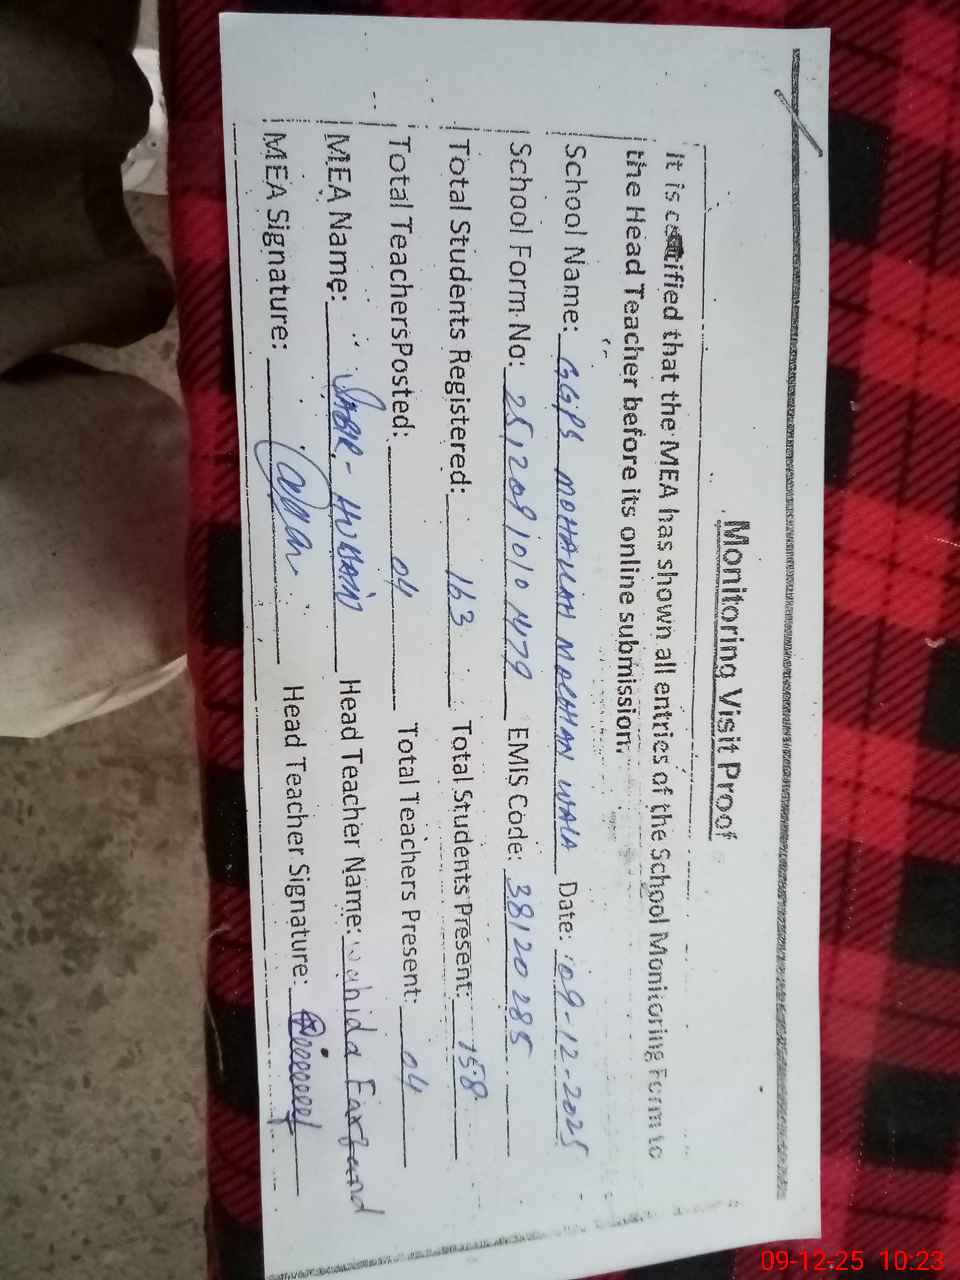 Monitoring Visit Proof
It is certified that the MEA has shown all entries of the School Monitoring Form to
the Head Teacher before its online submission.
School Name: GGPS MOHANAN WALA Date: 09-12-2025
School Form No: EMIS Code: 38120285
Total Students Registered: 163 Total Students Present: 158
Total Teachers Posted: 04 Total Teachers Present: 04
MEA Name: SABIR - HUSSAIN Head Teacher Name: Wahida
MEA Signature: Head Teacher Signature:
09-12-25 10:23